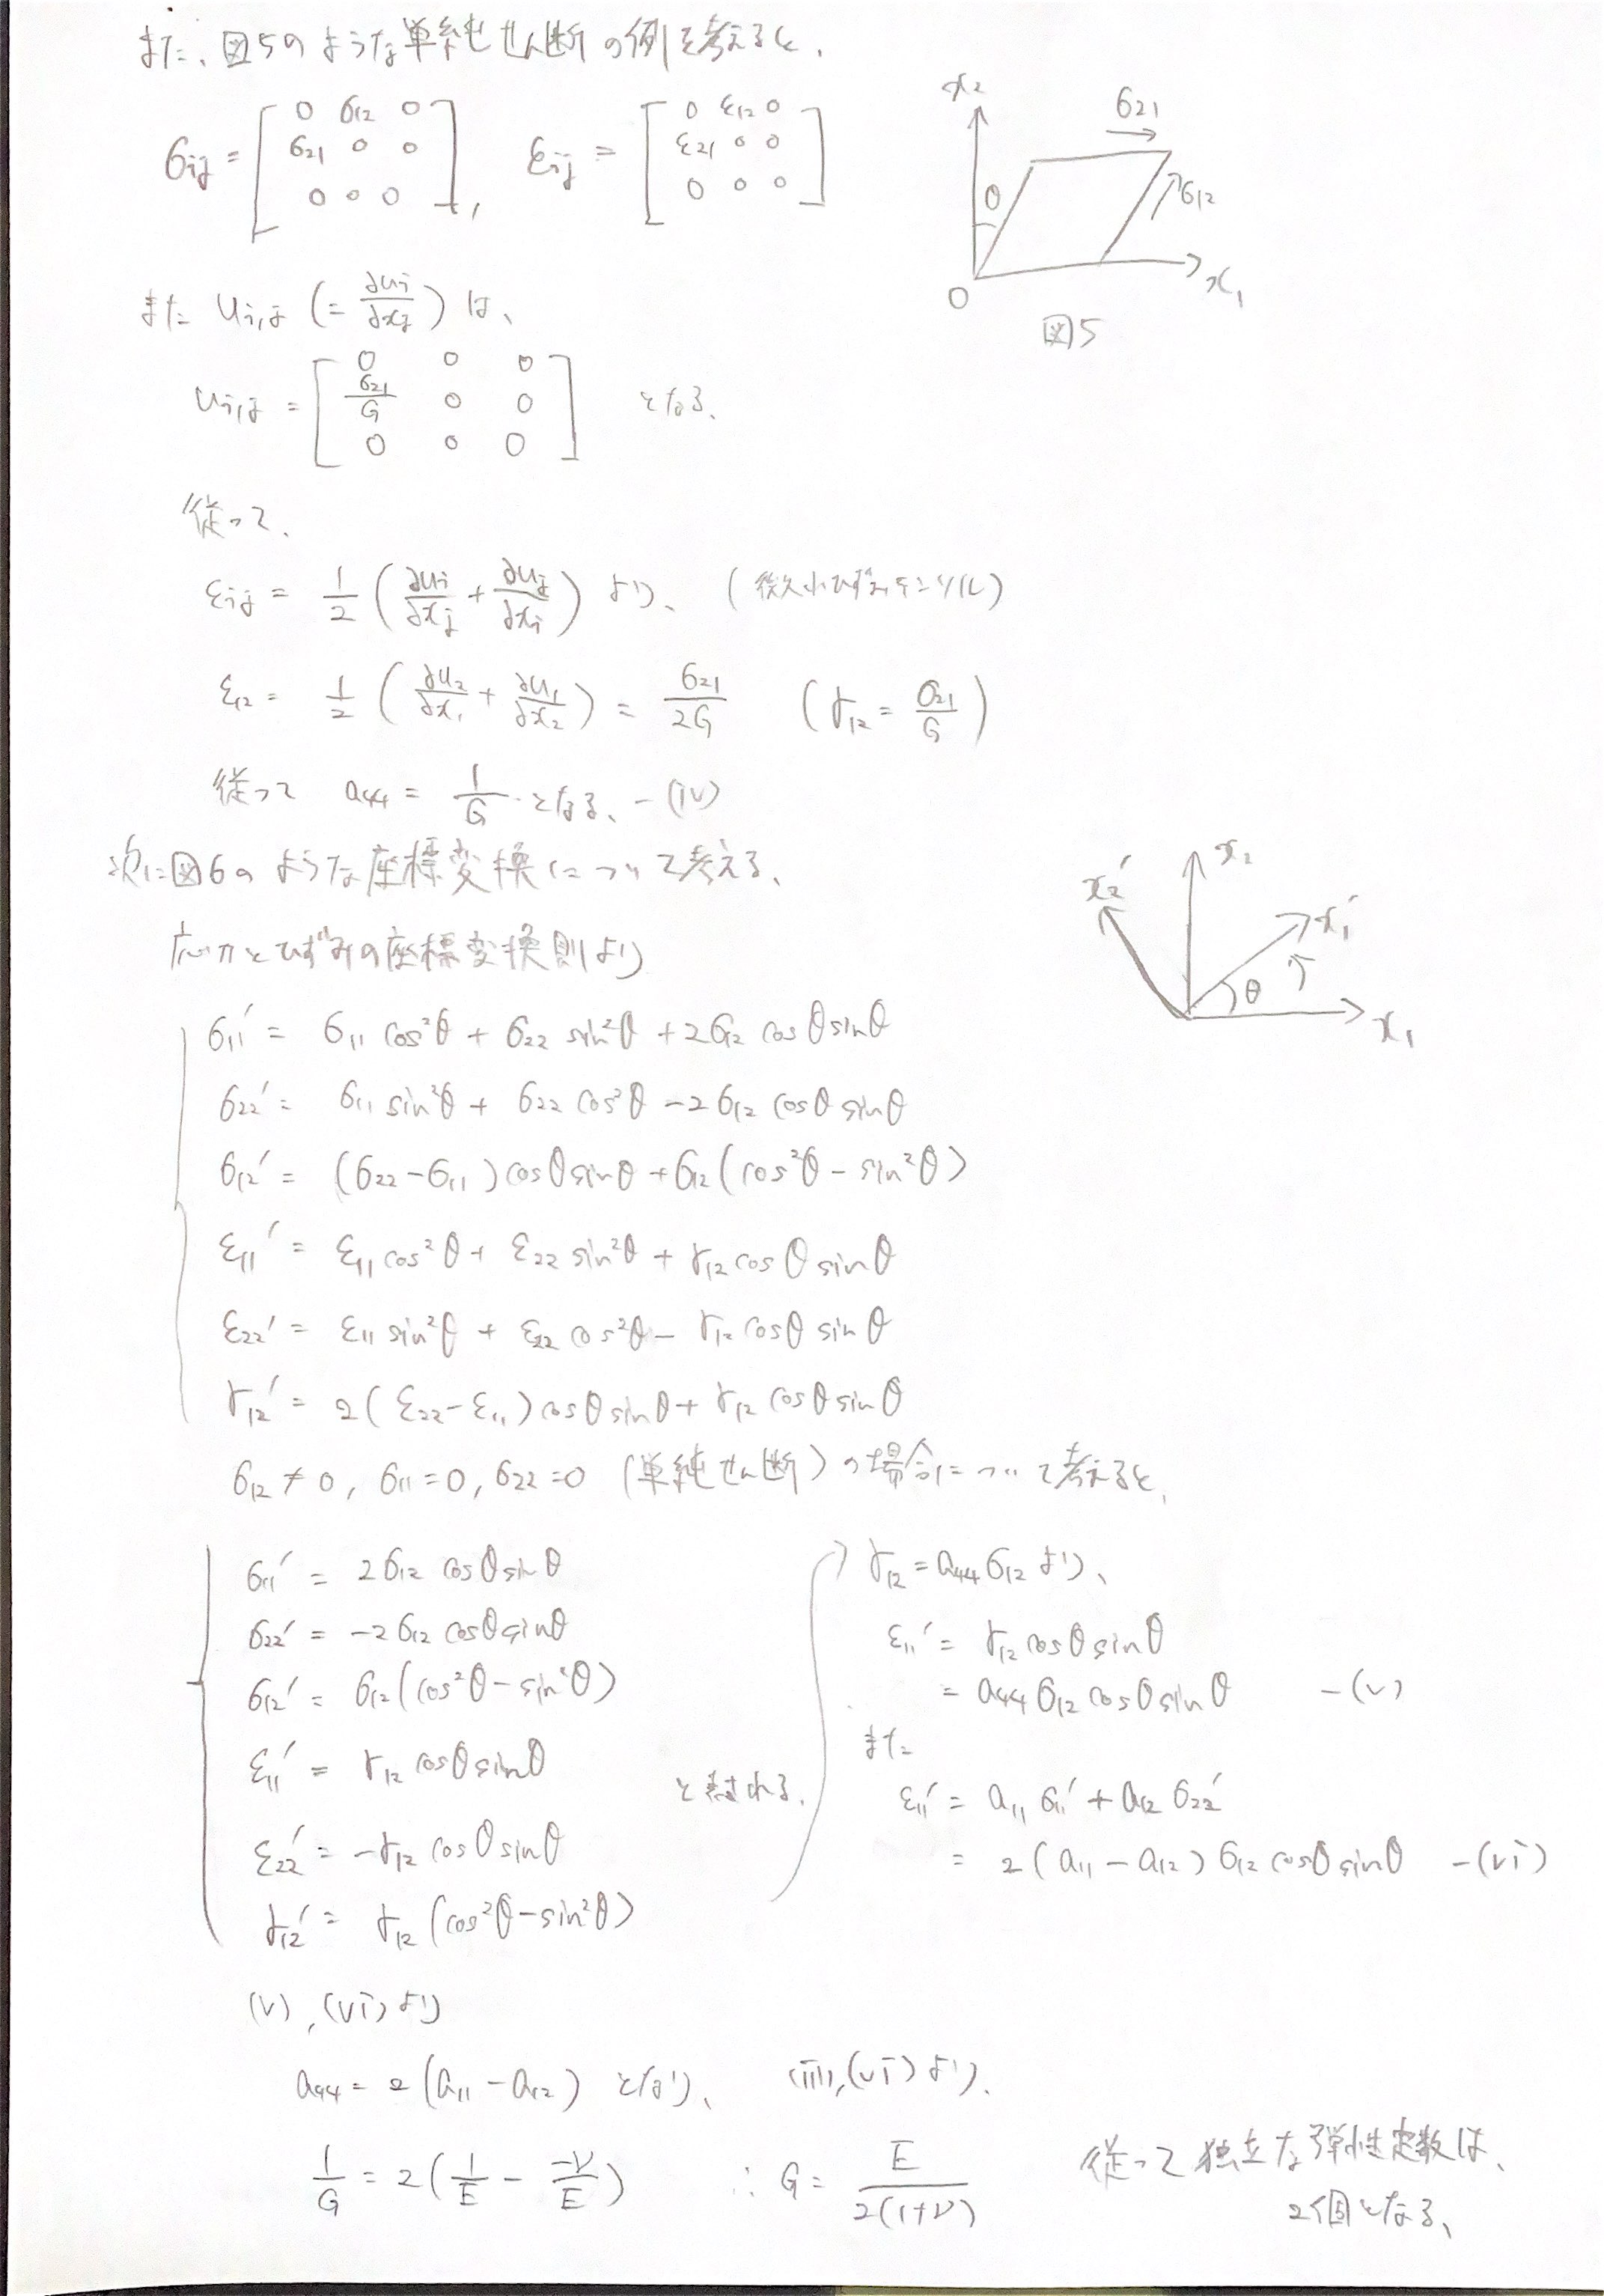 また、図5のような単純せん断の例を考えると、
σij = [ 0 σ12 0 ; σ21 0 0 ; 0 0 0 ] , εij = [ 0 ε12 0 ; ε21 0 0 ; 0 0 0 ]
x2
σ21
θ
σ12
O
x1
図5
また ui,j (= ∂ui/∂xj) は、
ui,j = [ 0 0 0 ; σ21/G 0 0 ; 0 0 0 ] となる、
従って、
εij = 1/2 (∂ui/∂xj + ∂uj/∂xi) より、 (微小ひずみテンソル)
ε12 = 1/2 (∂u2/∂x1 + ∂u1/∂x2) = σ21/2G (γ12 = σ21/G)
従って a44 = 1/G となる、 -(iv)
次に図6のような座標変換について考える、
x2'
x2
x1'
θ
x1
応力とひずみの座標変換則より
σ11' = σ11 cos²θ + σ22 sin²θ + 2σ12 cosθ sinθ
σ22' = σ11 sin²θ + σ22 cos²θ - 2σ12 cosθ sinθ
σ12' = (σ22 - σ11) cosθ sinθ + σ12 (cos²θ - sin²θ)
ε11' = ε11 cos²θ + ε22 sin²θ + γ12 cosθ sinθ
ε22' = ε11 sin²θ + ε22 cos²θ - γ12 cosθ sinθ
γ12' = 2(ε22 - ε11) cosθ sinθ + γ12 cosθ sinθ
σ12 ≠ 0, σ11 = 0, σ22 = 0 (単純せん断) の場合について考えると、
σ11' = 2σ12 cosθ sinθ
σ22' = -2σ12 cosθ sinθ
σ12' = σ12 (cos²θ - sin²θ)
ε11' = γ12 cosθ sinθ
ε22' = -γ12 cosθ sinθ
γ12' = γ12 (cos²θ - sin²θ)
と表される、
γ12 = a44 σ12 より、
ε11' = γ12 cosθ sinθ
= a44 σ12 cosθ sinθ -(v)
また
ε11' = a11 σ11' + a12 σ22'
= 2(a11 - a12) σ12 cosθ sinθ -(vi)
(v), (vi) より
a44 = 2(a11 - a12) となり、 (iii), (vi) より、
1/G = 2(1/E - -ν/E) ∴ G = E/2(1+ν)
従って独立な弾性定数は、
2個となる、